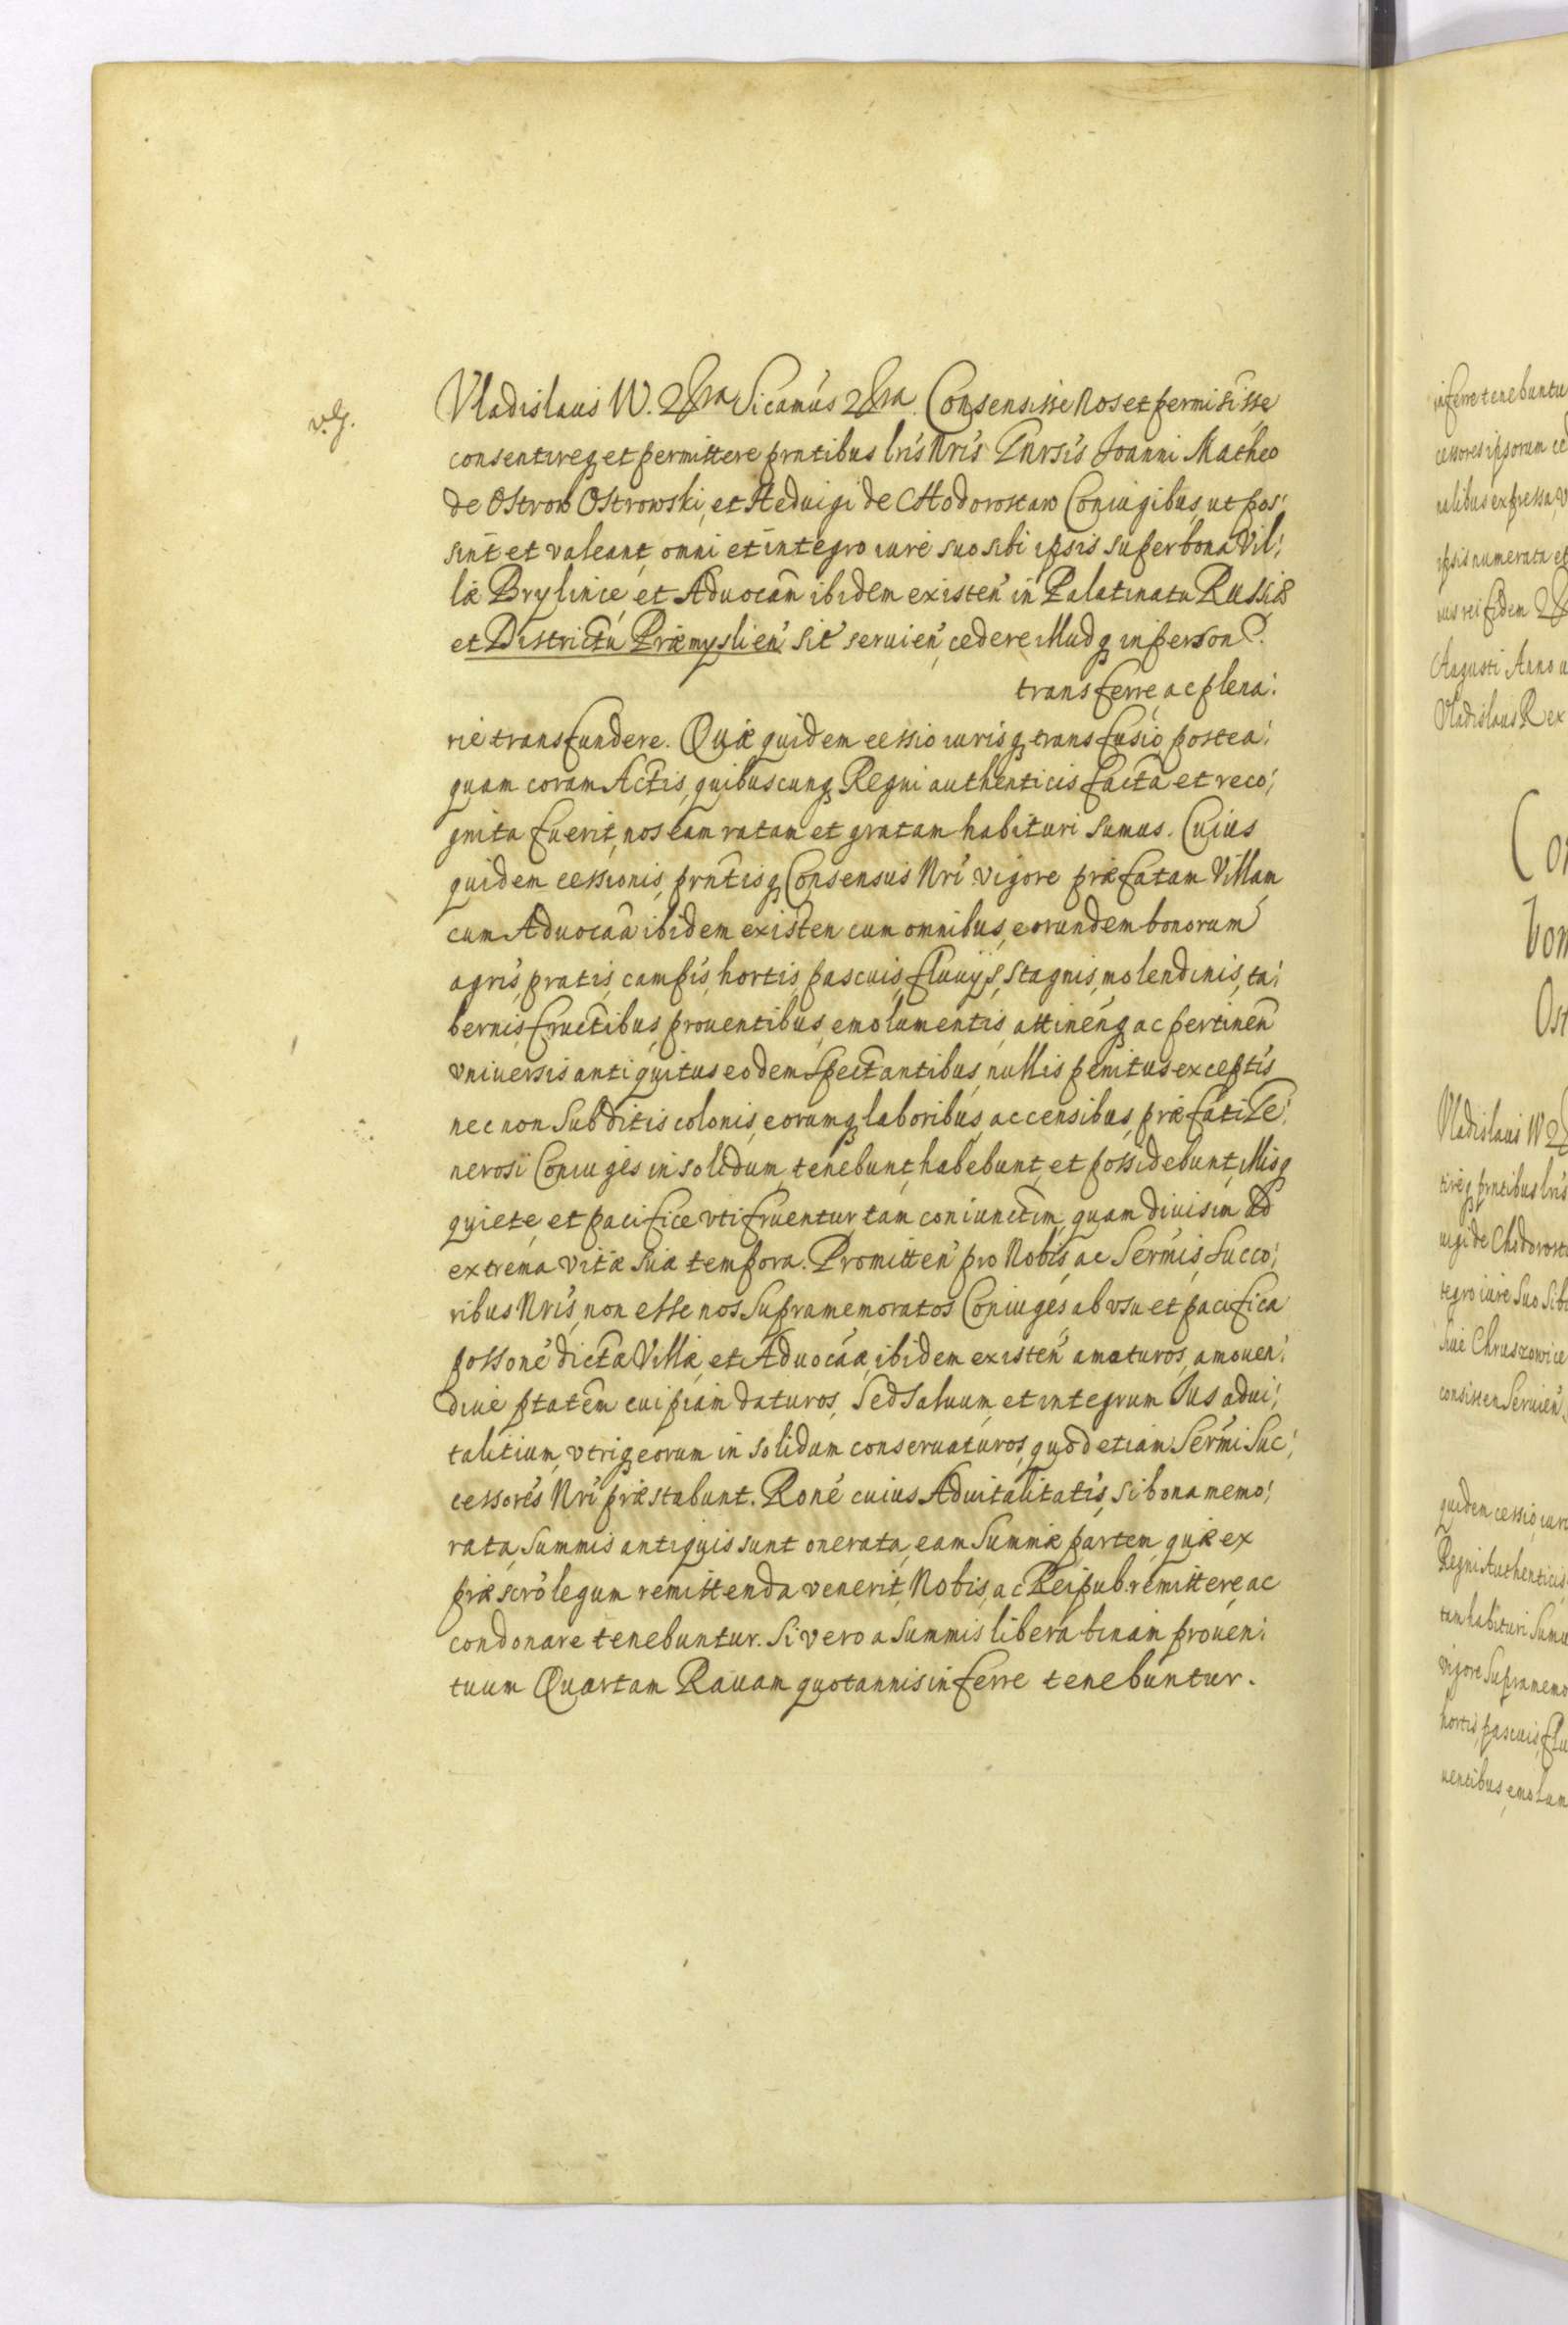 v. g.
Vladislaus IV. &ra Sicamus &ra. Consensisse Nos et permisisse
consentireq et permittere prntibus lris Nris Gnrsis Joanni Matheo
de Ostrow Ostrowski, et Heduigi de CHodorostaw Coniugibus, ut pos:
sint et valeant, omni et integro iure suo sibi ipsis super bona Vil:
læ Brylince, et Aduocam ibidem existen in Palatinatu Russiæ
et Districtu Præmyslien sit seruien, cedere illudq in person
transferre, ac plena:
rie transfundere. Quæ quidem cessio iurisq transfusio postea:
quam coram Actis, quibuscunq Regni authenticis facta et reco:
gnita fuerit, nos eam ratam et gratam habituri sumus. Cuius
quidem cessionis, prntisq Consensus Nri vigore præfatam Villam
cum Aduocaa ibidem existen cum omnibus, eorundem bonorum
agris, pratis, campis, hortis, pascuis, fluuijs, stagnis, molendinis, ta:
bernis, fructibus, prouentibus, emolumentis, attinenq ac pertinen
vniuersis antiquitus eodem spectantibus, nullis penitus exceptis
nec non Subditis colonis, eorumq laboribus, ac censibus, præfati Ge:
nerosi Coniuges in solidum, tenebunt, habebunt, et possidebunt, illisq
quiete, et pacifice vti fruentur, tam coniunctim, quam diuisim ad
extrema vitæ suæ tempora. Promitten pro Nobis, ac Sermis, Succo:
ribus Nris, non esse nos Supramemoratos Coniuges, ab vsu et pacifica
possone dictæ Villæ, et Aduocaæ, ibidem existen amoturos, amouen:
diue ptatem cuipiam daturos, Sed Saluum, et integrum Jus adui:
talitium, vtriq eorum in solidum conseruaturos, quod etiam Sermi Suc:
cessores Nri præstabunt. Rone cuius Aduitalitatis, si bona memo:
rata, Summis antiquis sunt onerata, eam Summæ partem, quæ ex
præscro legum remittenda venerit, Nobis, ac Reipub. remittere, ac
condonare tenebuntur. Si vero a Summis libera binam prouen:
tuum Quartam Rauam quotannis inferre tenebuntur.
inferre tenebuntu
cessores ipsorum ce
nalibus expressa, v
ipsis numerata et
ius rei fidem
Augusti Anno
Vladislaus Rex
Con
bon
Ost
Vladislaus IV
tireq prntibus lris
uigi de Chodorosta
tegro iure suo sibi
siue Chruszowice
consisten Seruien
quidem cessio, iuri
Regni Authenticis,
tam habituri Sumu
vigore Supramemo
hortis, pascuis, flu
uentibus, emolum